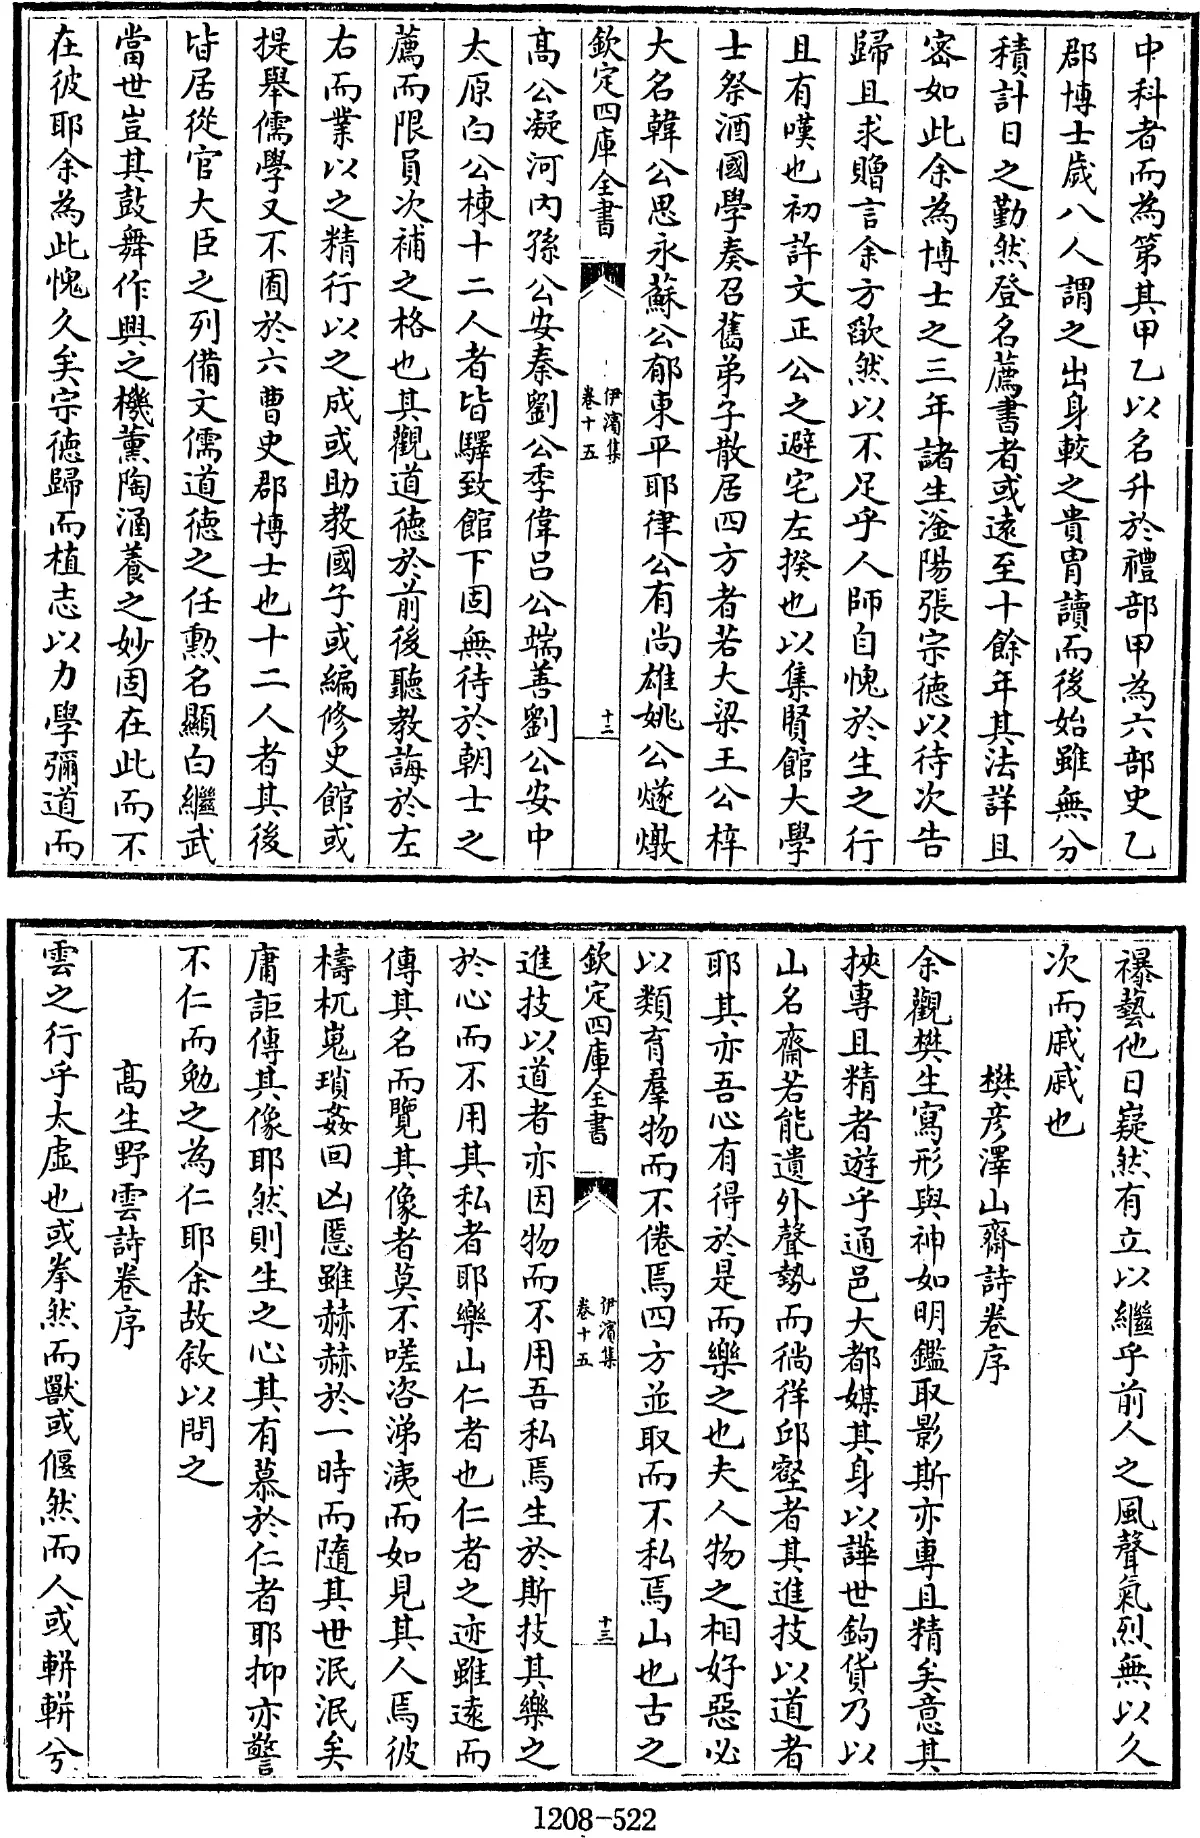 中科者而為第其甲乙以名升於禮部甲為六部史乙
郡博士歲八人謂之出身較之貴胄讀而後始雖無分
積計日之勤然登名薦書者或遠至十餘年其法詳且
密如此余為博士之三年諸生滏陽張宗德以待次告
歸且求贈言余方歉然以不足乎人師自愧於生之行
且有嘆也初許文正公之避宅左揆也以集賢館大學
士祭酒國學奏召舊弟子散居四方者若大梁王公梓
大名韓公思永蘇公郁東平耶律公有尚雄姚公燧燉
欽定四庫全書
伊濱集
卷十五
十二
高公凝河內孫公安秦劉公季偉呂公端善劉公安中
太原白公棟十二人者皆驛致館下固無待於朝士之
薦而限員次補之格也其觀道德於前後聽教誨於左
右而業以之精行以之成或助教國子或編修史館或
提舉儒學又不囿於六曹史郡博士也十二人者其後
皆居從官大臣之列備文儒道德之任勲名顯白繼武
當世豈其鼓舞作興之機薰陶涵養之妙固在此而不
在彼耶余為此愧久矣宗德歸而植志以力學彌道而
襮藝他日嶷然有立以繼乎前人之風聲氣烈無以久
次而戚戚也
樊彦澤山齋詩卷序
余觀樊生寫形與神如明鑑取影斯亦專且精矣意其
挾專且精者遊乎通邑大都媒其身以譁世鉤貨乃以
山名齋若能遺外聲勢而徜徉邱壑者其進技以道者
耶其亦吾心有得於是而樂之也夫人物之相好惡必
以類育羣物而不倦焉四方並取而不私焉山也古之
欽定四庫全書
伊濱集
卷十五
十三
進技以道者亦因物而不用吾私焉生於斯技其樂之
於心而不用其私者耶樂山仁者也仁者之迹雖遠而
傳其名而覽其像者莫不嗟咨涕洟而如見其人焉彼
檮杌嵬瑣姦回凶慝雖赫赫於一時而隨其世泯泯矣
庸詎傳其像耶然則生之心其有慕於仁者耶抑亦警
不仁而勉之為仁耶余故敘以問之
高生野雲詩卷序
雲之行乎太虛也或拳然而獸或偃然而人或輧輧兮
1208-522